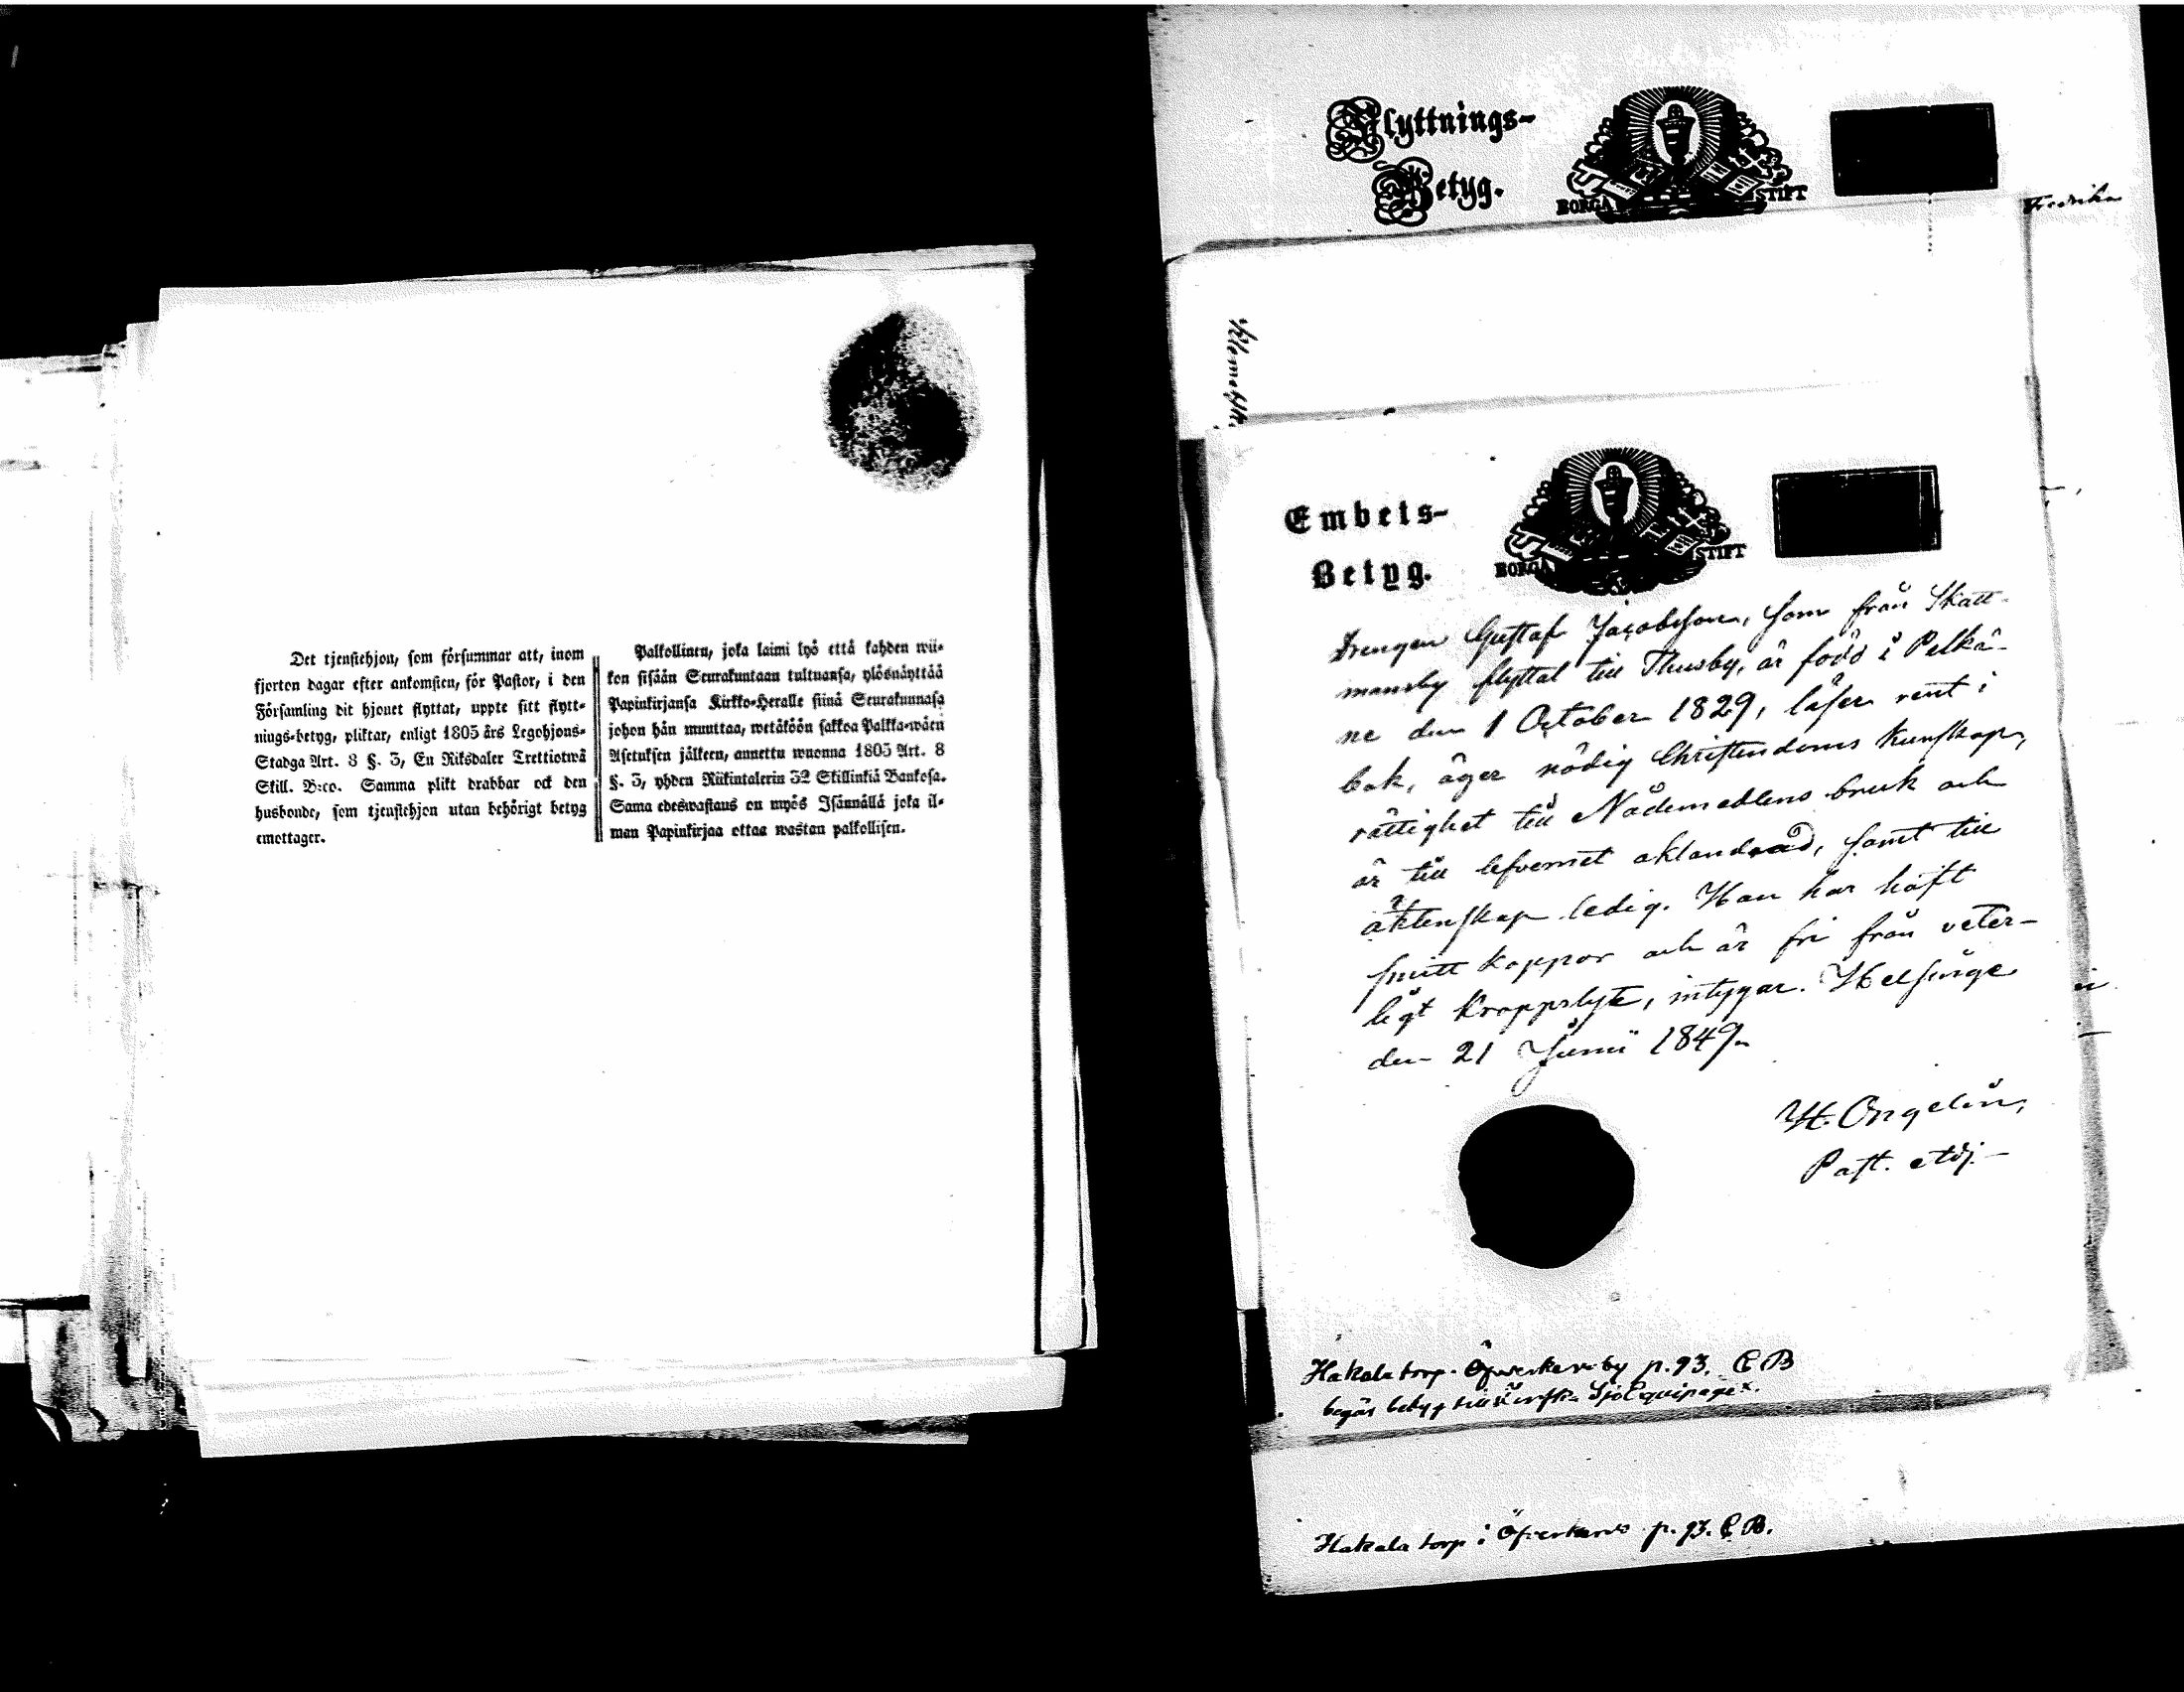 Det tjenstehjon, som försummar att, inom
fjorton dagar efter ankomsten, för Pastor, i den
Församling dit hjonet flyttat, uppte sitt flytt-
nings-betyg, pliktar, enligt 1805 års Legohjons-
Stadga Art. 8 §. 3, En Riksdaler Trettiotwå
Skill. B:co. Samma plikt drabbar ock den
husbonde, som tjenstehjon utan behörigt betyg
emottager.
Palkollinen, joka laimi lyö että kahden wii-
kon sisään Seurakuntaan tultuansa, ylösnäyttää
Papinkirjansa Kirkko-Heralle siinä Seurakunnasa
johon hän muuttaa, wetäköön sakkoa Palkka-wäen
Asetuksen jälkeen, annettu wuonna 1805 Art. 8
§. 3, yhden Riikintalerin 32 Skillinkiä Bankosa.
Sama edeswastaus on myös Isännällä joka il-
man Papinkirjaa ottaa wastan palkollisen.
Flyttnings-
Betyg.
BORGÅ STIFT
Fredrika
Embets-
Betyg.
BORGÅ STIFT
Drengen Gustaf Jacobsson, som från Skatt-
mansby flyttat till Thusby, är född i Pelkä-
ne den 1 October 1829, läser rent i
bok, äger nödig Christendoms kunskap,
rättighet till Nådemedlens bruk och
är till lefvernet oklandrad, samt till
äktenskap ledig. Han har haft
smitt koppor och är fri från veter-
ligt kroppslyte, intygar. Helsinge
den 21 Junii 1849.
H. Ongelin,
Past. adj.
Hakala torp. Öfverkervby p. 93. C B
begär betyg till Finska Sjö Equipaget.
Hakala torp i Öfverkervo p. 93. C B.